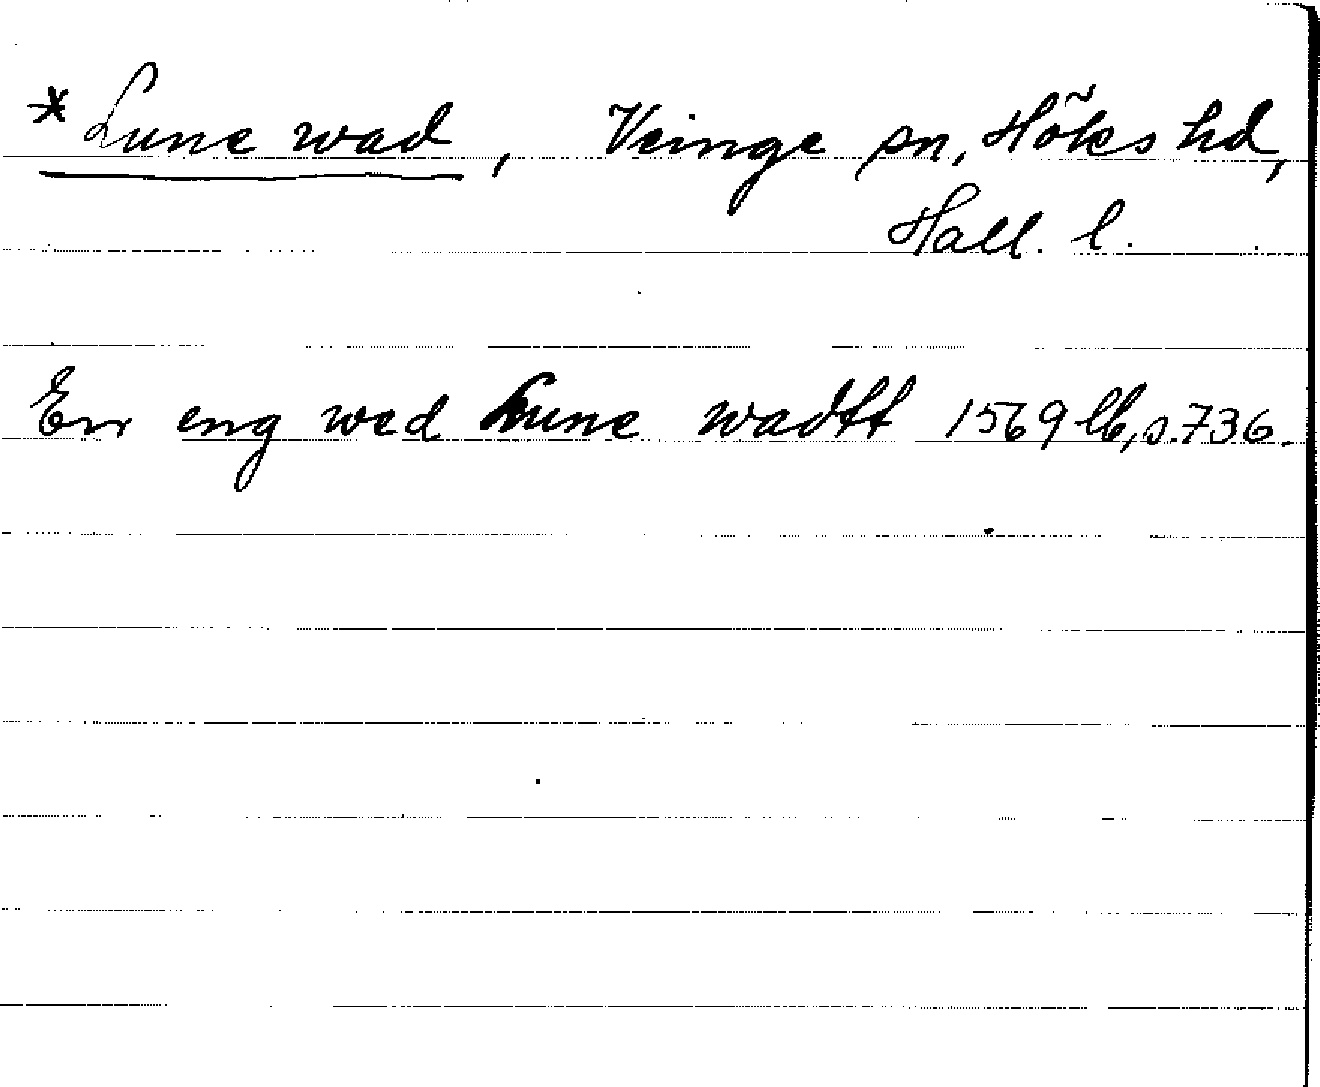 * Lune wad, Veinge sn, Höks hd,
Hall. l.
En eng wed Lune wadtt 1569 lb, s. 736.